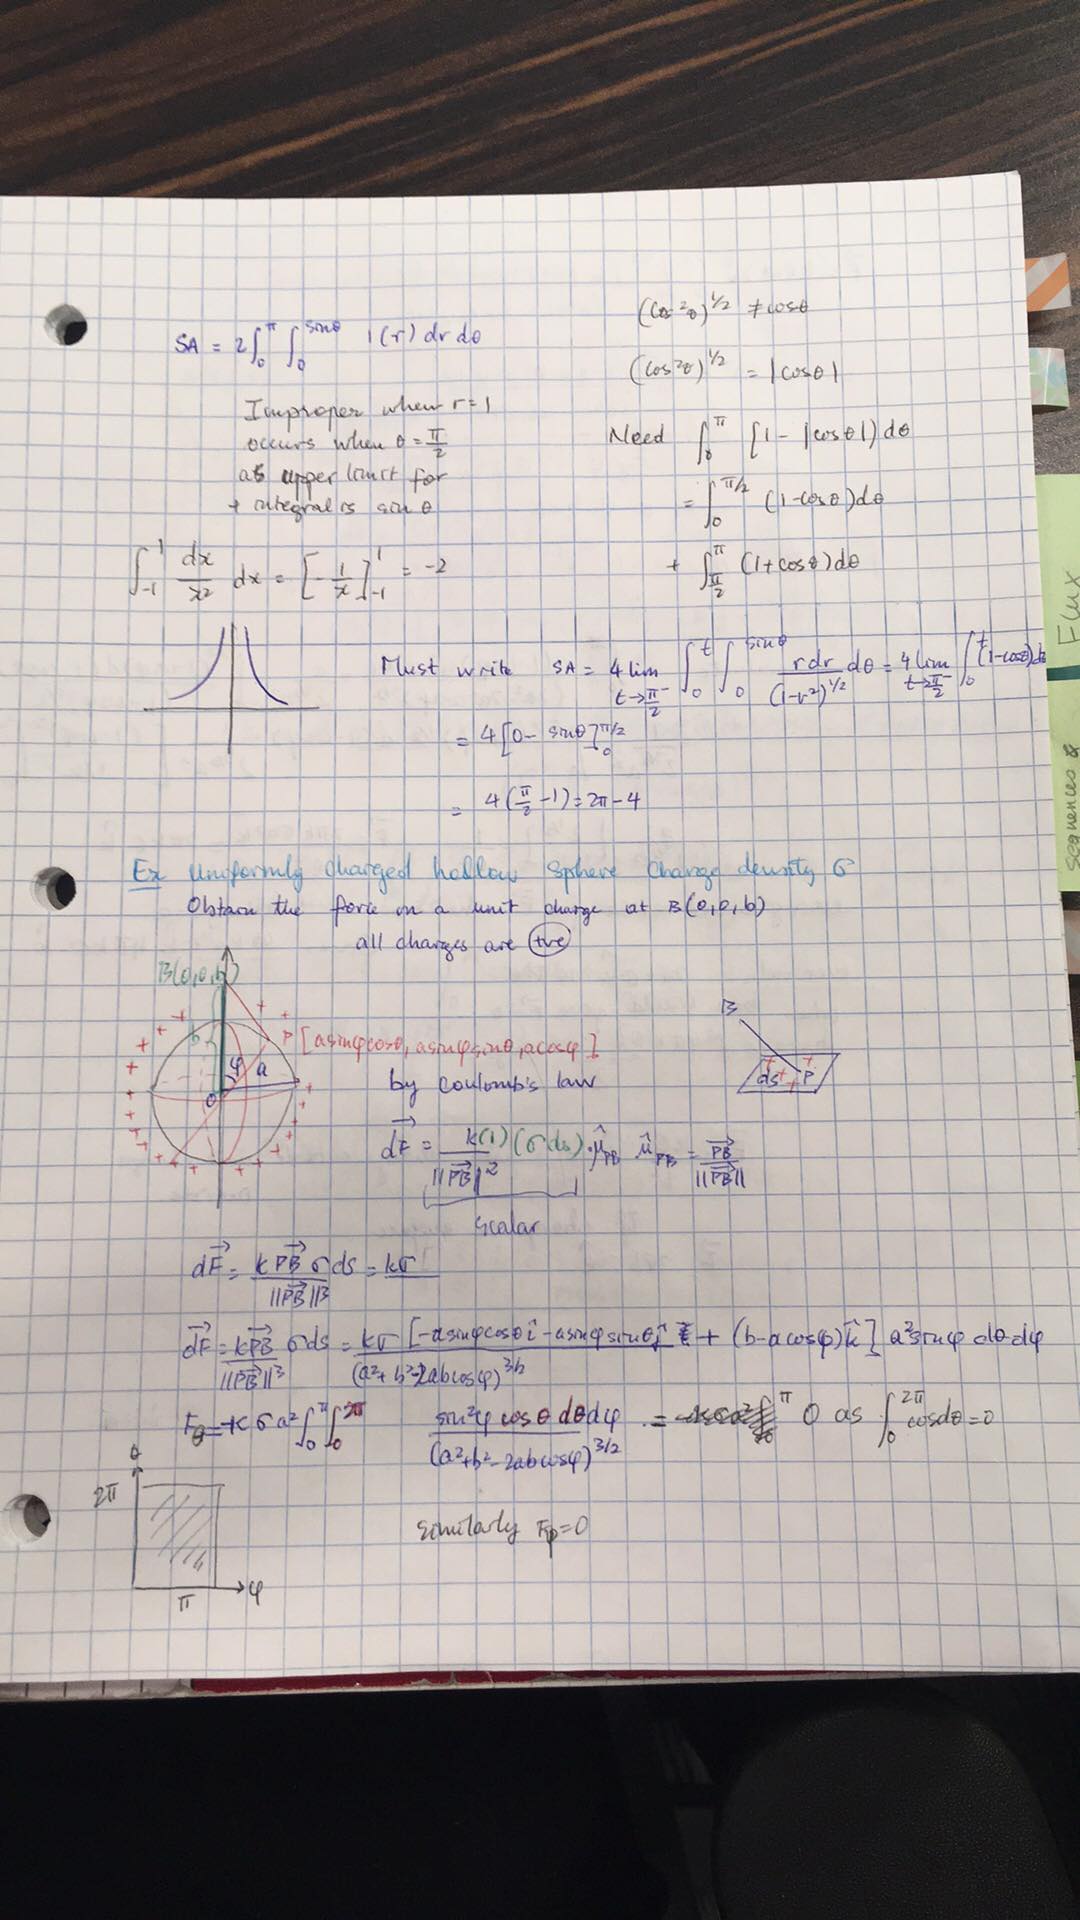 SA = 2∫₀^π ∫₀^sinθ 1(r) dr dθ
Improper when r=1
occurs when θ = π/2
as upper limit for
r integral is sin θ
∫₋₁¹ dx/x² dx = [-1/x]₋₁¹ = -2
(cos²θ)^1/2 ≠ cosθ
(cos²θ)^1/2 = |cosθ|
Need ∫₀^π [1 - |cosθ|) dθ
= ∫₀^π/2 (1-cosθ)dθ
+ ∫_π/2^π (1+cosθ)dθ
Must write SA = 4 lim t→π/2⁻ ∫₀^t ∫₀^sinθ rdr/(1-r²)^1/2 dθ = 4 lim t→π/2⁻ ∫₀^t (1-cosθ)dθ
= 4[θ - sinθ]₀^π/2
= 4(π/2 -1) = 2π-4
Ex Uniformly charged hollow sphere charge density σ
Obtain the force on a unit charge at B(0,0,b)
all charges are +ve
B(0,0,b)
P [asinφcosθ, asinφsinθ, acosφ]
b
φ
a
O
by coulomb's law
B
ds P
dF⃗ = k(1)(σds)/||PB⃗||² · μ̂_PB μ̂_PB = PB⃗/||PB⃗||
scalar
dF⃗ = kPB⃗ σds/||PB⃗||³ = kσ
dF⃗ = kPB⃗/||PB⃗||³ σds = kσ [-asinφcosθ î - asinφsinθ ĵ + (b-acosφ)k̂] a²sinφ dθdφ/(a²+b²-2abcosφ)^3/2
= 0 as ∫₀^2π cosdθ=0
∫₀^π ∫₀^2π sin²φ cosθ dθdφ/(a²+b²-2abcosφ)^3/2
θ
2π
π
φ
Similarly